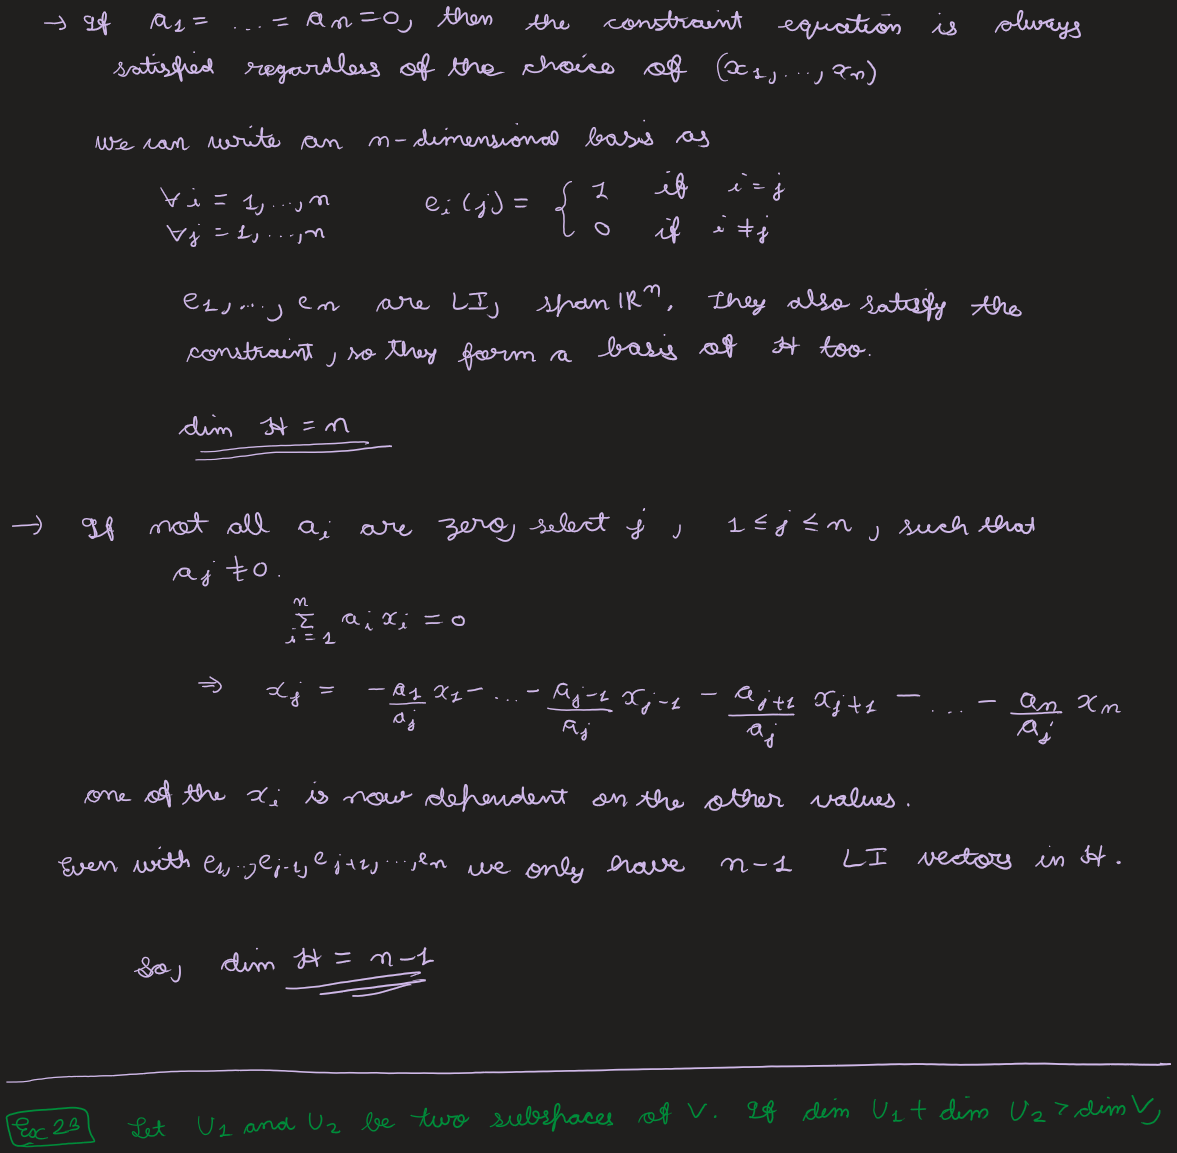 → If a₁ = ... = aₙ = 0, then the constraint equation is always
satisfied regardless of the choice of (x₁, ..., xₙ)
we can write an n-dimensional basis as
∀i = 1, ..., n    eᵢ(j) = { 1 if i = j
∀j = 1, ..., n    0 if i ≠ j
e₁, ..., eₙ are LI, span ℝⁿ. They also satisfy the
constraint, so they form a basis of H too.
dim H = n
→ If not all aᵢ are zero, select j, 1 ≤ j ≤ n, such that
aⱼ ≠ 0.
∑ᵢ₌₁ⁿ aᵢxᵢ = 0
⇒ xⱼ = -a₁/aⱼ x₁ - ... - aⱼ₋₁/aⱼ xⱼ₋₁ - aⱼ₊₁/aⱼ xⱼ₊₁ - ... - aₙ/aⱼ xₙ
one of the xᵢ is now dependent on the other values.
Even with e₁, ..., eⱼ₋₁, eⱼ₊₁, ..., eₙ we only have n-1 LI vectors in H.
So, dim H = n-1
Ex 23 Let U₁ and U₂ be two subspaces of V. If dim U₁ + dim U₂ > dim V,